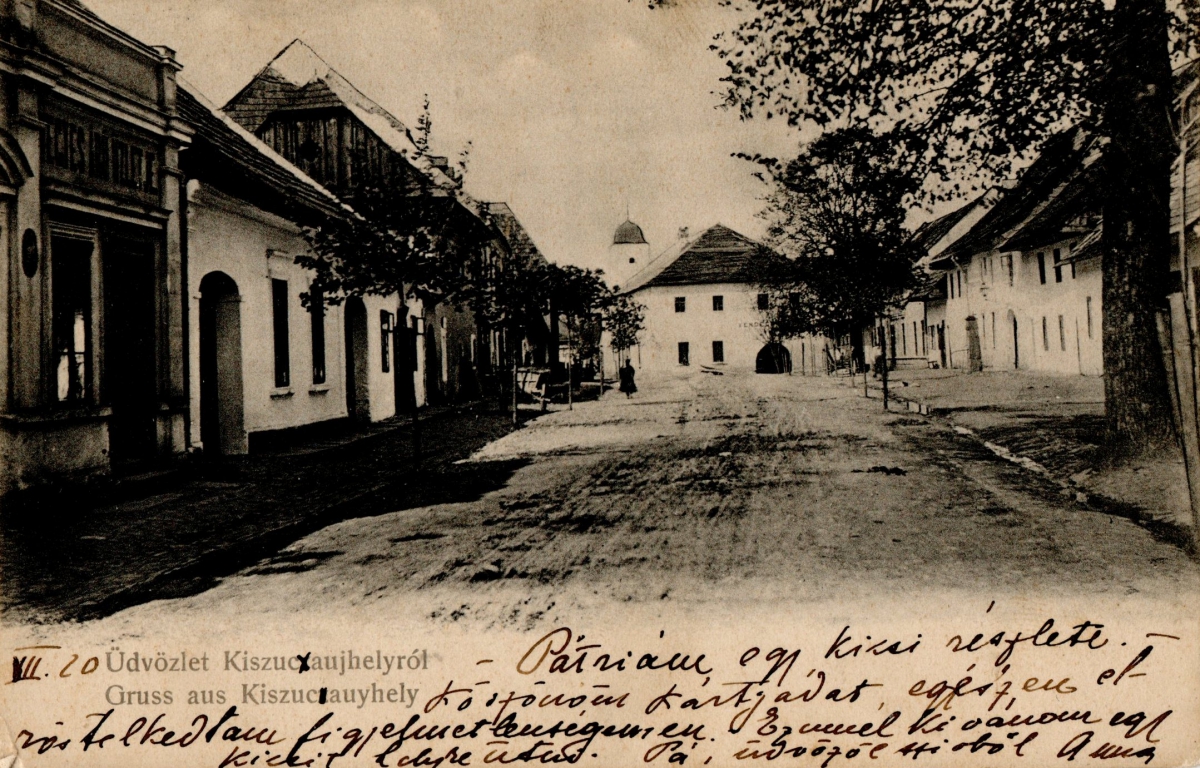 VENDÉ
VII. 20 Üdvözlet Kiszucxaujhelyról
Gruss aus Kiszucıauyhely
– Pátriám egy kicsi részlete. –
Köszönöm kártyádat, egészen el-
röstelkedtam figyelmetlenségemen. Ezennel kivánom egy
kicsit helyre ütni. Pá, üdvözöl szivből Anna